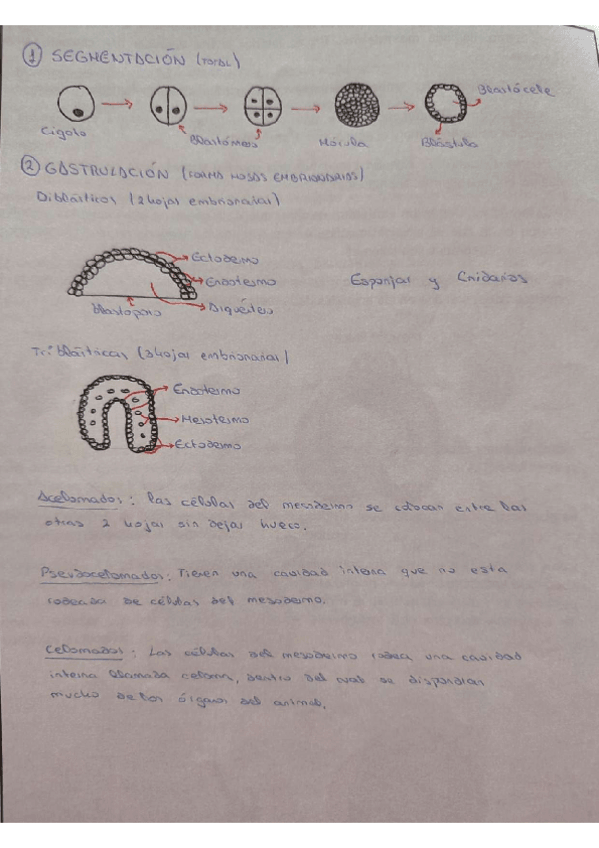 1 SEGMENTACIÓN (TOTAL)
Blastócele
Cigoto
Blastómeros
Mórula
Blástula
2 GASTRULACIÓN (FORMA HOJAS EMBRIONARIAS)
Diblásticos (2 hojas embrionarias)
Ectodermo
Endodermo
Esponjas y Cnidarios
Blastoporo
Arquénteron
Triblásticas (3 hojas embrionarias)
Endodermo
Mesodermo
Ectodermo
Acelomados: Las células del mesodermo se colocan entre las
otras 2 hojas sin dejar hueco.
Pseudocelomados: Tienen una cavidad interna que no esta
rodeada de células del mesodermo.
Celomados: Las células del mesodermo rodea una cavidad
interna llamada celoma, dentro del cual se dispondran
mucho de los órganos del animal.